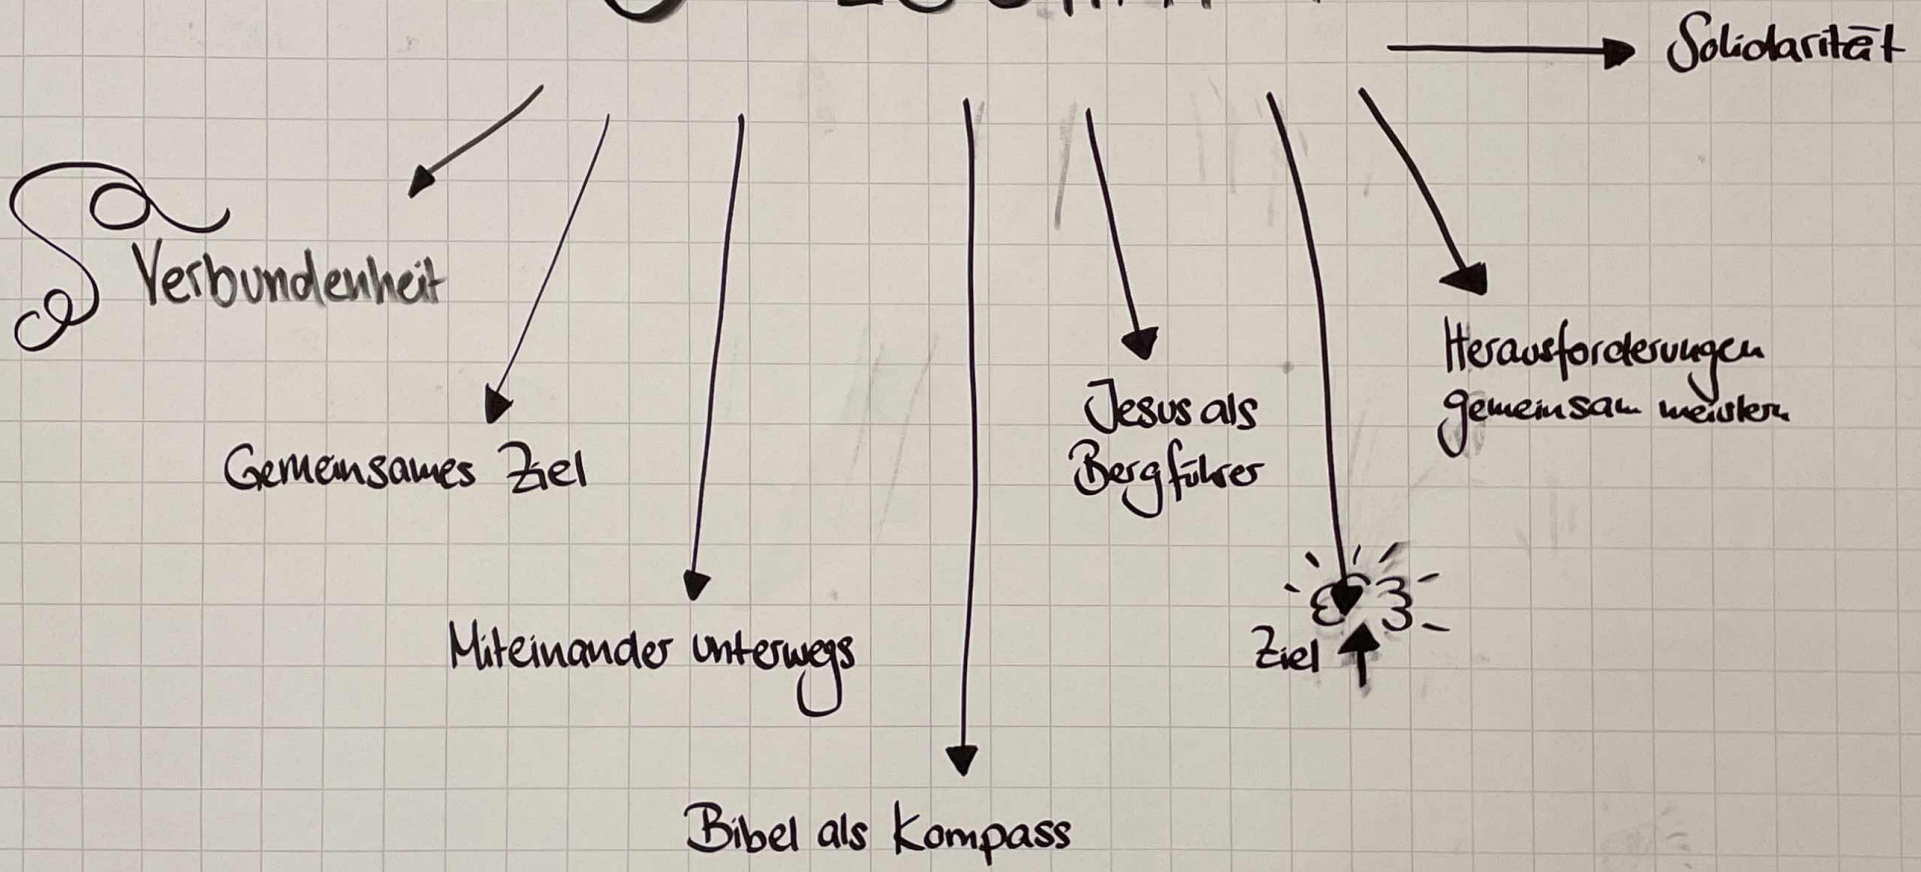 Solidarität
Verbundenheit
Gemeinsames Ziel
Miteinander unterwegs
Bibel als Kompass
Jesus als
Bergführer
Ziel
Herausforderungen
gemeinsam meistern